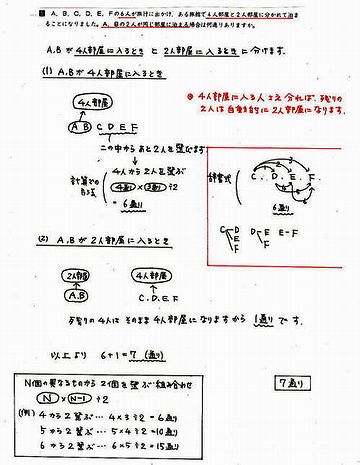 A、B、C、D、E、Fの6人が旅行に出かけ、ある旅館で4人部屋と2人部屋に分かれて泊ま
ることになりました。A、Bの2人が同じ部屋に泊まる場合は何通りありますか。
A,Bが4人部屋に入るときと2人部屋に入るときに分けます。
(1) A,Bが4人部屋に入るとき
4人部屋
A B C D E F
この中からあと2人を選びます
計算での方法
4から2つ選ぶ
4通り×3通り÷2
=6通り
※4人部屋に入る人さえ分れば、残りの
2人は自動的に2人部屋になります。
辞書式
C. D. E. F
6通り
C D E F
D E F
E-F
(2) A,Bが2人部屋に入るとき
2人部屋 4人部屋
A.B C.D.E.F
残りの4人はそのまま4人部屋になりますから 1通り です。
以上より 6+1=7 (通り)
N個の異なるものから2個を選ぶ組み合わせ
N×N-1÷2
(例) 4から2選ぶ… 4×3÷2=6通り
5から2選ぶ… 5×4÷2=10通り
6から2選ぶ… 6×5÷2=15通り
7通り